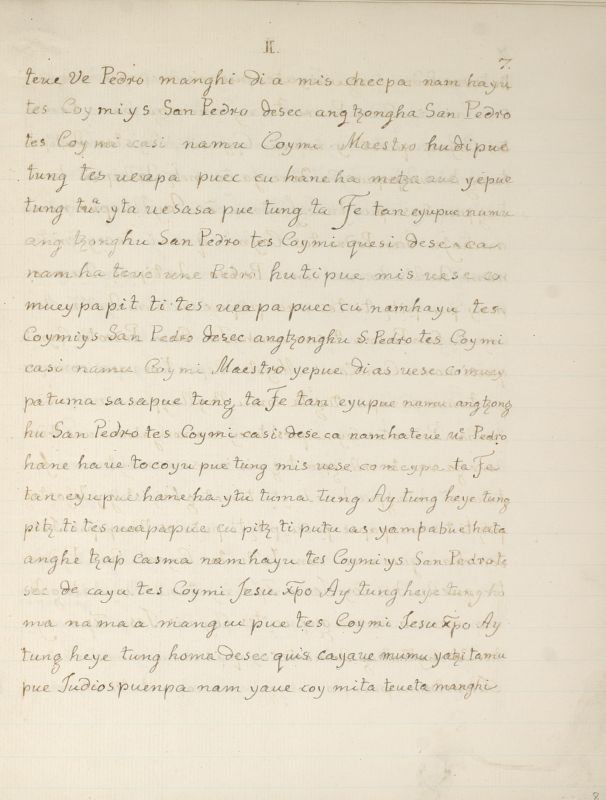 II.
7.
teue Ve Pedro manghi di a mis checpa nam hayu
tes Coymiys San Pedro desec angtzongha San Pedro
tes Coymi casi namu Coymi Maestro hudipue
tung tes ueapa puec cu hane ha metza aue yepue
tung tuª. yta uesasa pue tung ta Fe tan eyupue numu
ang tzonghu San Pedro tes Coymi quesi dese ca
nam ha teue une Pedro hutipue mis uese co
muey papit ti tes ueapa puec cu namhayu tes
Coymiys San Pedro desec angtzonghu S. Pedro tes Coymi
casi namu Coymi Maestro yepue di as uese comuey
patuma sasapue tung ta Fe tan eyupue namu angtzong
hu San Pedro tes Coymi casi dese ca namhateue ue Pedro
hane haue tocoyu pue tung mis uese comeypa ta Fe
tan eyupue hane ha ytu tuma tung Ay tung heye tung
pitz ti tes ueapapue cu pitz ti putu as yampabue hata
anghe tzap casma namhayu tes Coymiys San Pedro te
sec de cayu tes Coymi Jesu xp̃o Ay tung heye tung ho
ma nama a mangui pue tes Coymi Jesu xp̃o Ay
tung heye tung homa desec quis cayaue mumu yatzi tamu
pue Judios puenpa nam yaue coy mita teueta manghi